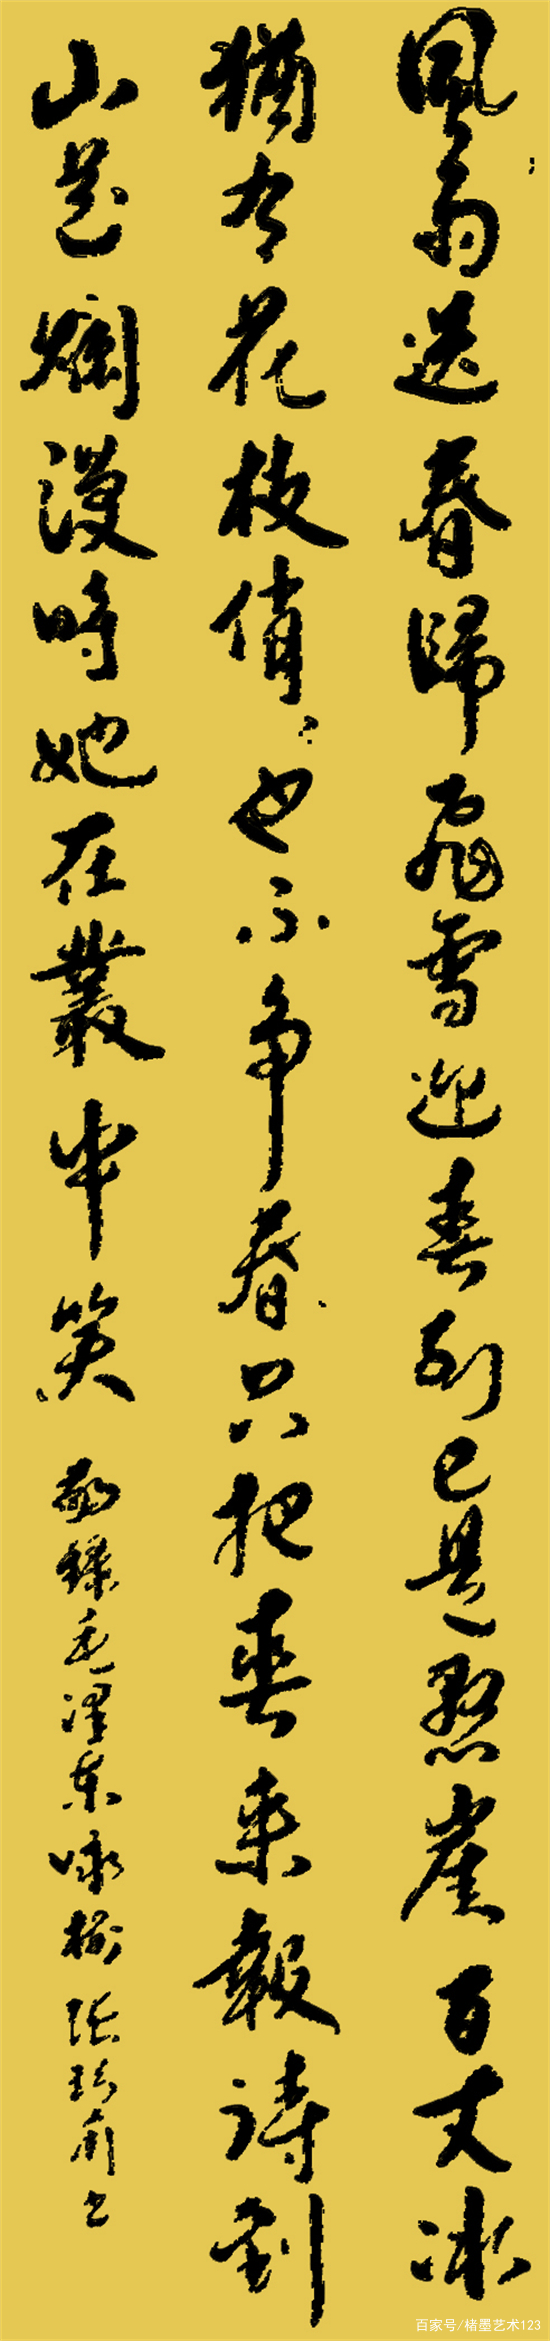 風雨送春歸飛雪迎春到已是懸崖百丈冰
猶有花枝俏々也不争春只把春来報待到
山花爛漫時她在叢中笑
敬録毛澤東咏梅 張 书
百家号/楮墨艺术123